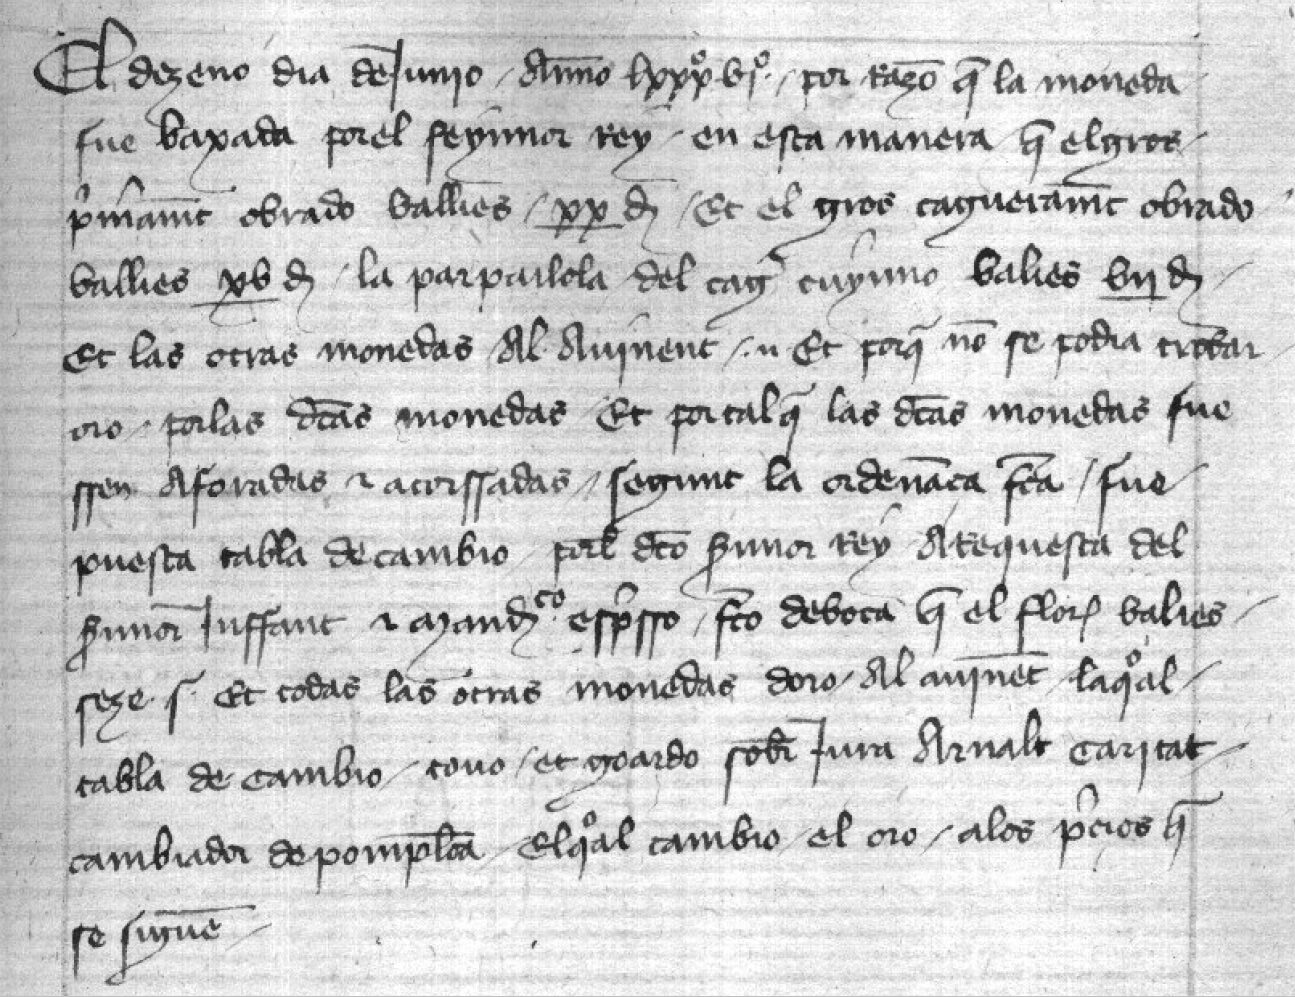 El dezeno dia de Junio Anno lxxxº vjº por razo q̄ la moneda
fue baxada por el seynnor Rey en esta manera q̄ el gros
p̄mamt̄ obrado vallies xx d̄ Et el gros cagueramt̄ obrado
vallies xv d̄ la parpaillola del cag cuynno valies vii d̄
Et las otras monedas Al Auinent Et porq̄ nō se podia trobar
oro por las dc̄as monedas Et por tal q̄ las dc̄as monedas fue
ssen Aforadas τ acorssadas segunt la ordenāca fc̄a fue
puesta tabla de cambio porl dc̄o s̄nnor Rey A Requesta del
s̄nnor Jnffant τ mand̄co esp̄sso fc̄o de boca q̄ el flor valies
seze s Et todas las otras monedas doro Al auinēt la qºal
tabla de cambio touo et goardo sobr̄ Jura Arnalt Caritat
cambiador de pomplōa El qºal cambio el oro a los p̄cios q̄
se siguē